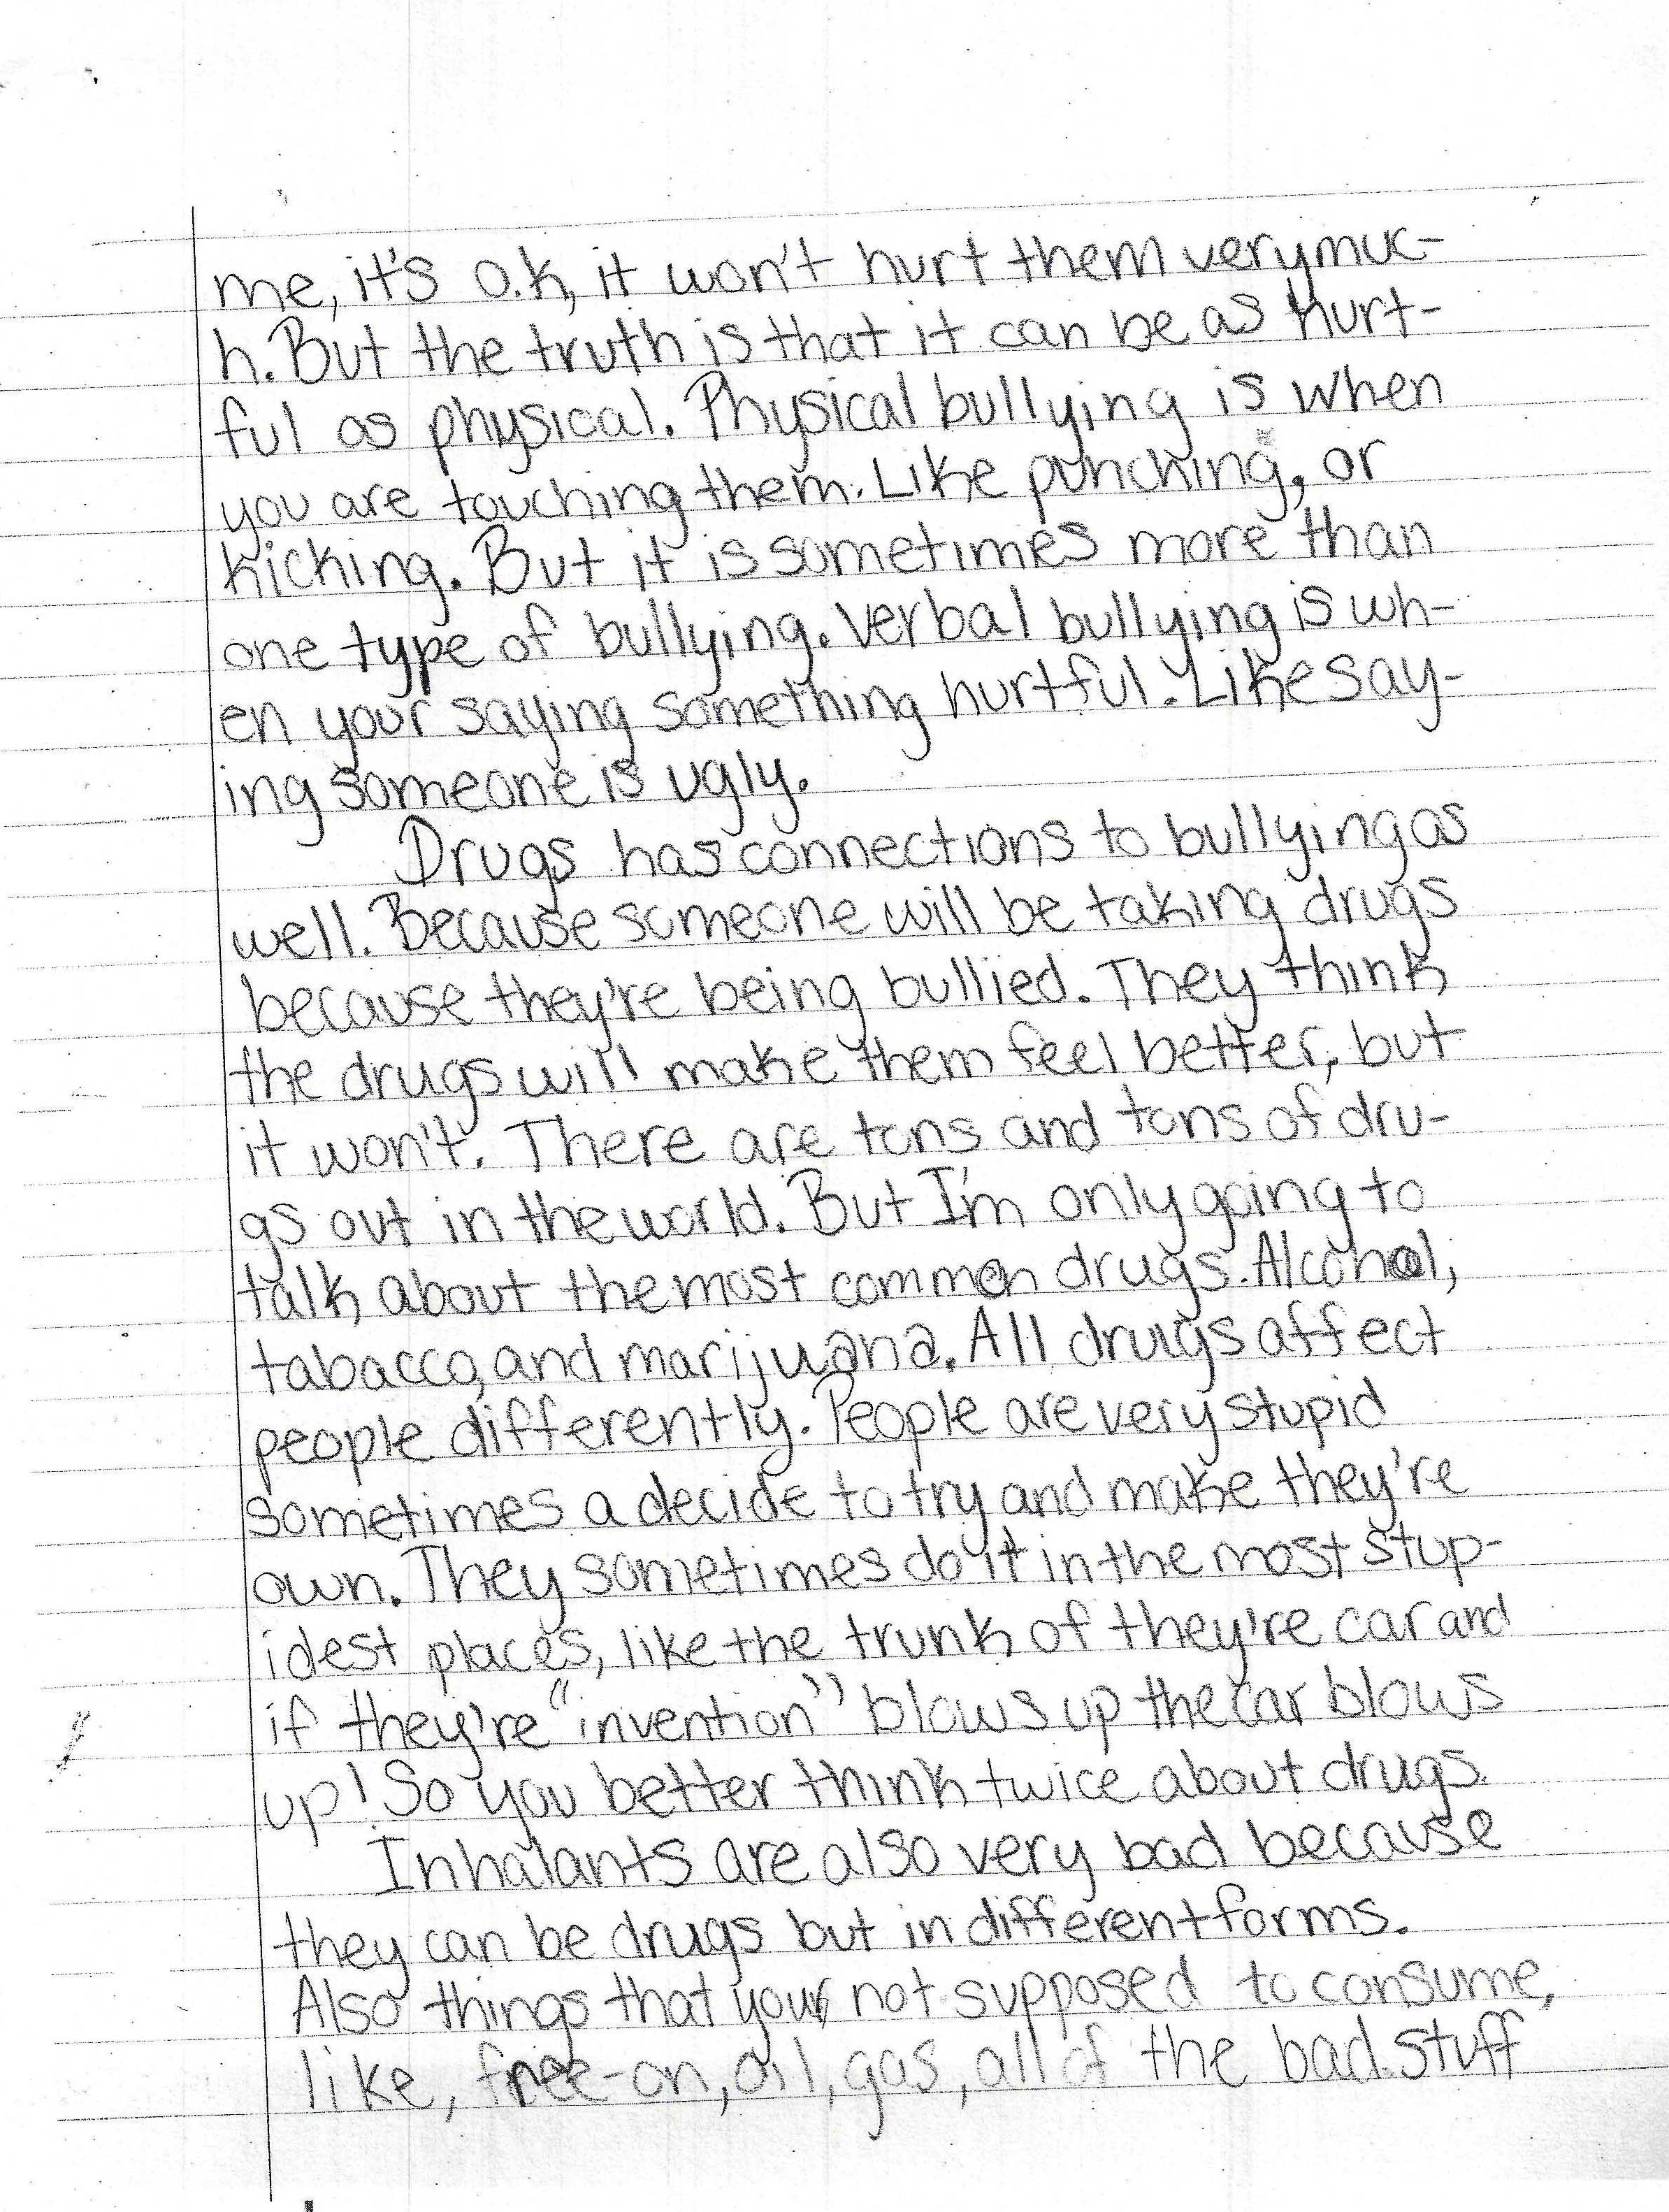 me, it's o.k, it won't hurt them very muc-
h. But the truth is that it can be as hurt-
ful as physical. Physical bullying is when
you are touching them. Like punching, or
kicking. But it is sometimes more than
one type of bullying. Verbal bullying is wh-
en your saying something hurtful. Like say-
ing someone is ugly.
Drugs has connections to bullying as
well. Because someone will be taking drugs
because they're being bullied. They think
the drugs will make them feel better, but
it won't. There are tons and tons of dru-
gs out in the world. But I'm only going to
talk about the most common drugs. Alcohol,
tabacco, and marijuana. All drugs affect
people differently. People are very stupid
sometimes a decide to try and make they're
own. They sometimes do it in the most stup-
idest places, like the trunk of they're car and
if they're "invention" blows up the car blows
up! So you better think twice about drugs.
Inhalants are also very bad because
they can be drugs but in different forms.
Also things that your not supposed to consume,
like, free-on, oil, gas, all of the bad stuff